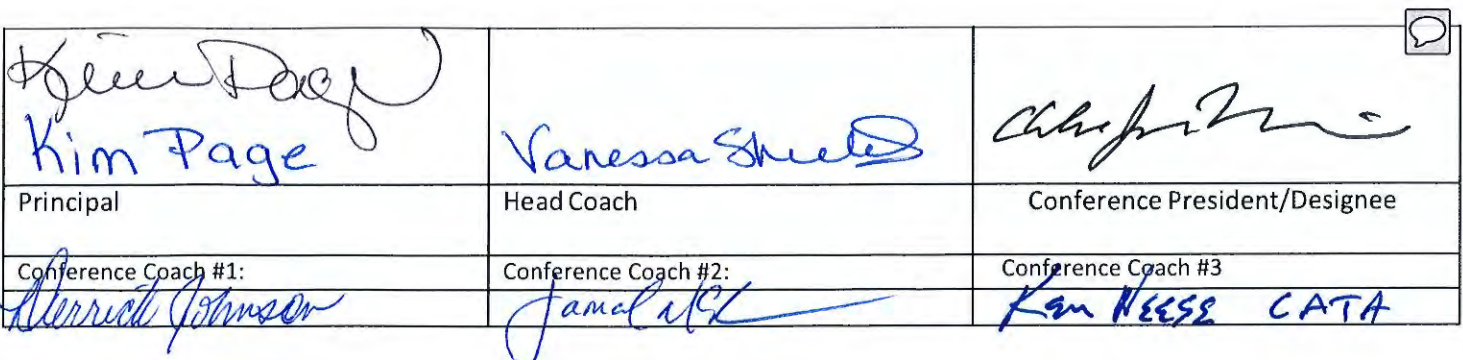 Kim Page
Kim Page Vanessa
Principal Head Coach Conference President/Designee
Conference Coach #1: Conference Coach #2: Conference Coach #3
Derrick Johnson Jamal Ken Neese CATA